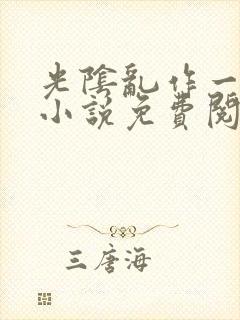 光陰亂作一
小說免費閱
三唐海